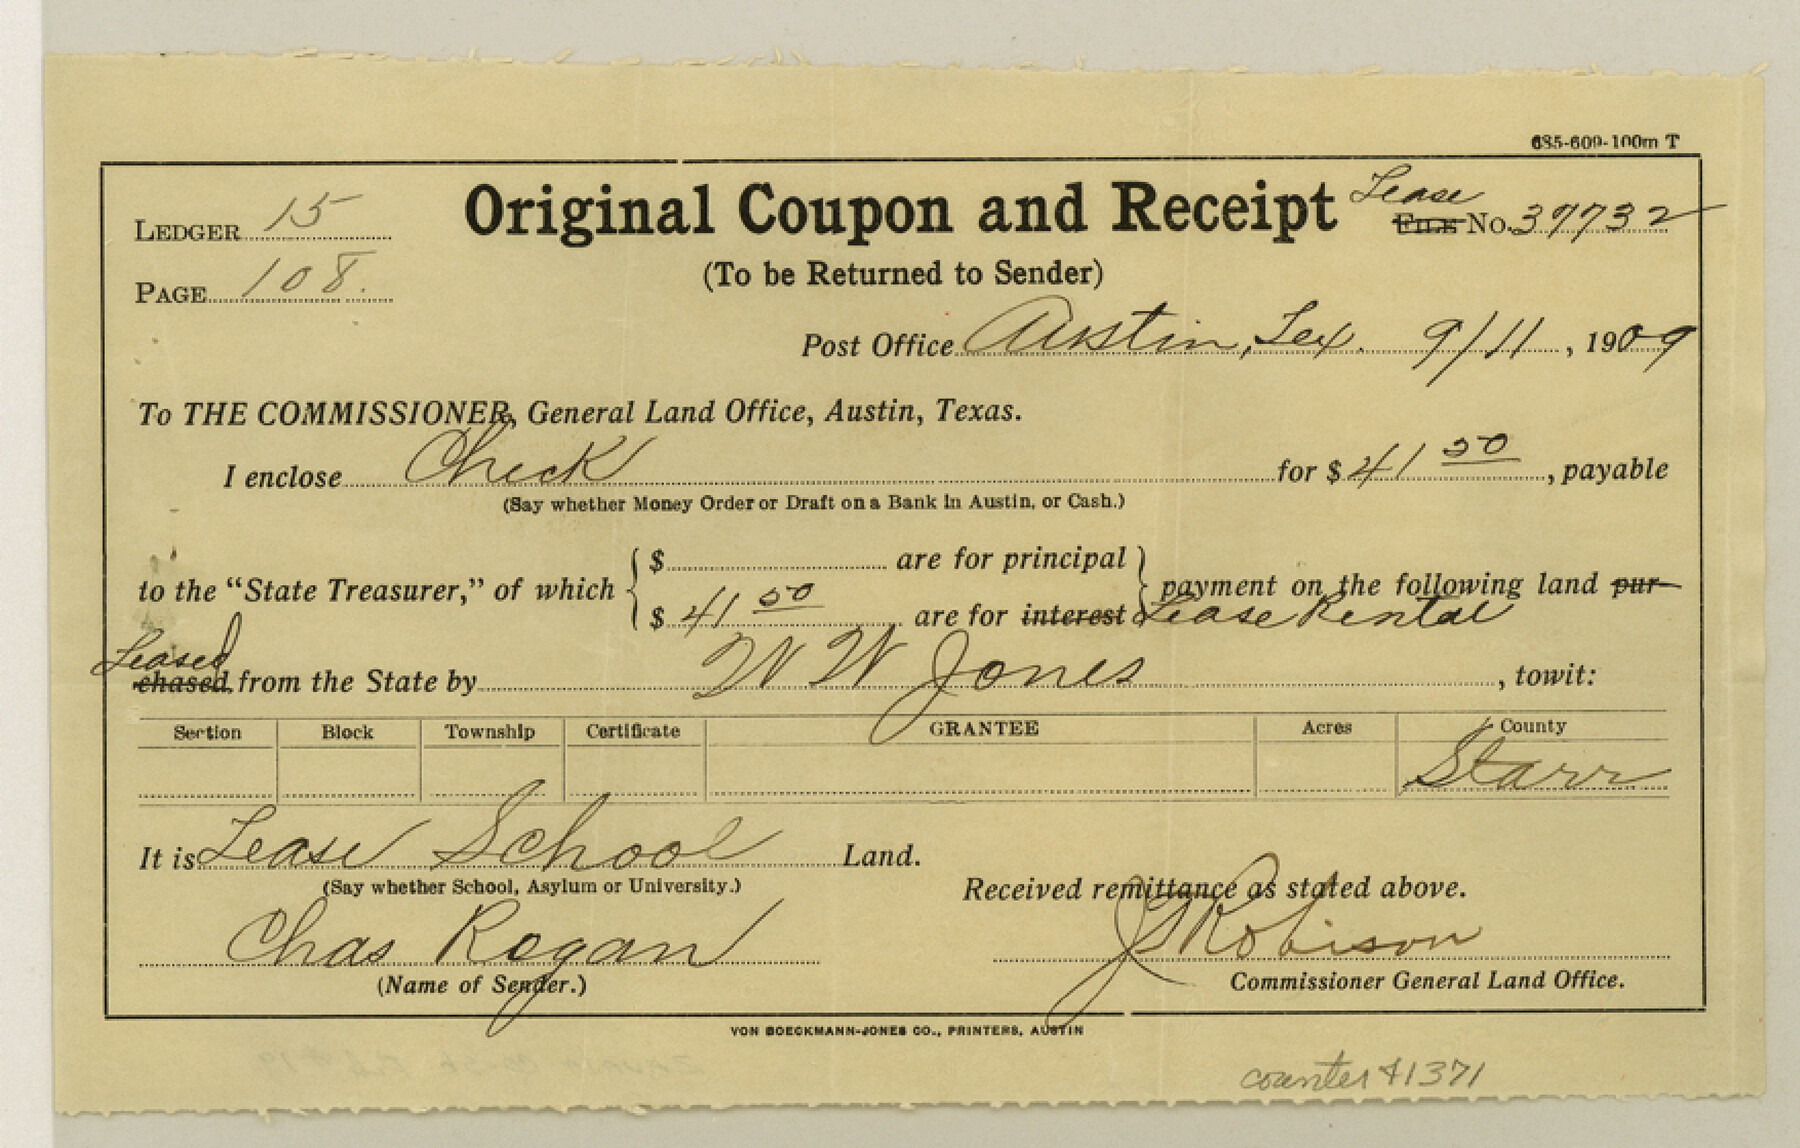 685-609-100m T
LEDGER 15
Original Coupon and Receipt
Lease
FILE No. 37732
PAGE 108.
(To be Returned to Sender)
Post Office Austin, Tex. 9/11, 1909
To THE COMMISSIONER, General Land Office, Austin, Texas.
I enclose Check for $ 41 50, payable
(Say whether Money Order or Draft on a Bank in Austin, or Cash.)
$ are for principal
to the “State Treasurer,” of which payment on the following land pur-
$ 41 50 are for interest Lease Rental
Leased
chased from the State by W W Jones, towit:
Section Block Township Certificate GRANTEE Acres County
Starr
It is Lease School Land.
(Say whether School, Asylum or University.)
Received remittance as stated above.
Chas Rogan
J T Robison
(Name of Sender.)
Commissioner General Land Office.
VON BOECKMANN-JONES CO., PRINTERS, AUSTIN
counter 41371